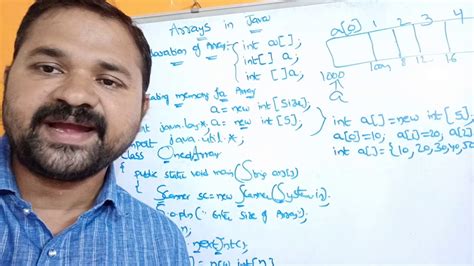 Arrays in Java
Declaration of Array: int a[];
int[] a;
int []a;
a[0] 1 2 3 4
1000 4 8 12 16
a
memory for Array
a = new int [size];
a = new int [5];
int a[] = new int [5];
a[0]=10; a[1]=20; a[2]
int a[] = {10,20,30,40,50
java.util.*;
class OneDArray
{ public static void main(String args[])
{ Scanner sc = new Scanner(System.in);
S.o.pln("Enter size of Array");
nextInt();
= new int[n]